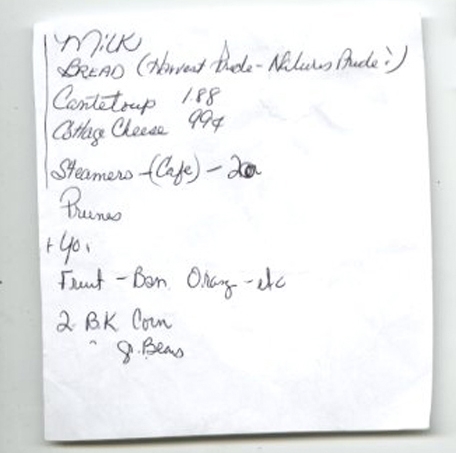 Milk
BREAD (Harvest Pride - Natures Pride?)
Canteloup 1.88
Cottage Cheese 99¢
Steamers - (Cafe) - 2
Prunes
+ Yo.
Fruit - Ban. Orang - etc
2 B.K Corn
" gr. Beans